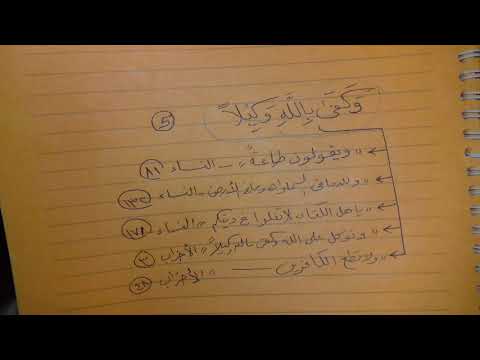 وَكَفَىٰ بِاللَّهِ وَكِيلًا 5
"ويقولون طاعةٌ" – النساء ٨١
"ولله ما في السماوات وما في الأرض – النساء ١٣٢
"يا أهل الكتاب لا تغلوا في دينكم" النساء ١٧١
"وتوكل على الله وكفى بالله وكيلاً" الأحزاب ٣
"ولا تطع الكافرين ——" الأحزاب ٤٨